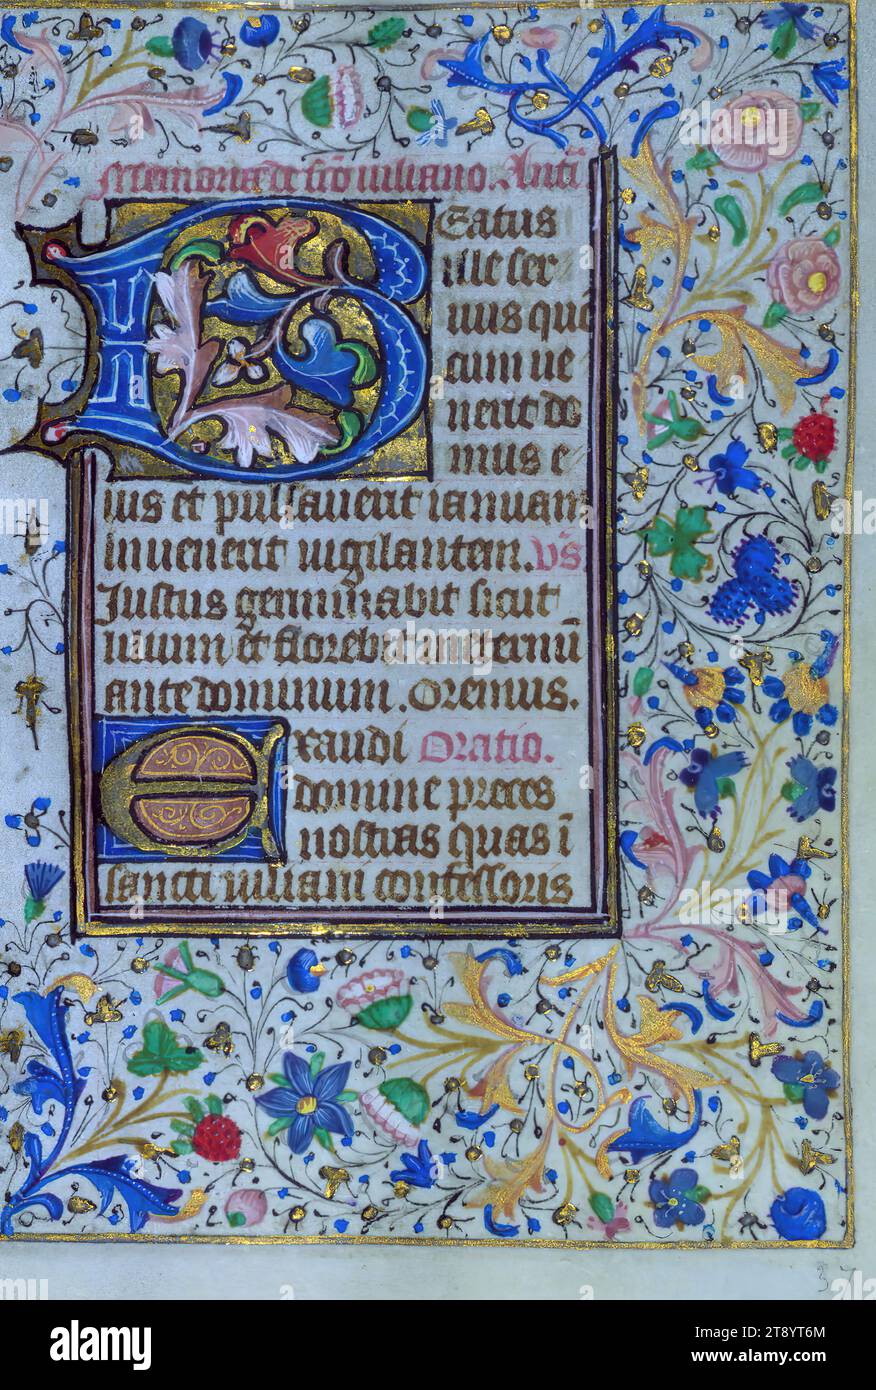 Memoria de sc̄o iuliano. Antī
Beatus
ille ser
uus quē
cum ue
nerit do
mus e
ius et pulsauerit ianuam
Inuenerit uigilantem. Vs̄
Iustus germinabit sicut
lilium et florebit ineternū
ante dominum. Oremus.
Exaudi Oratio.
domine preces
nostras quas ī
sancti iuliani confessoris
37
a
alamy
Image ID: 2T8YT6M
www.alamy.com